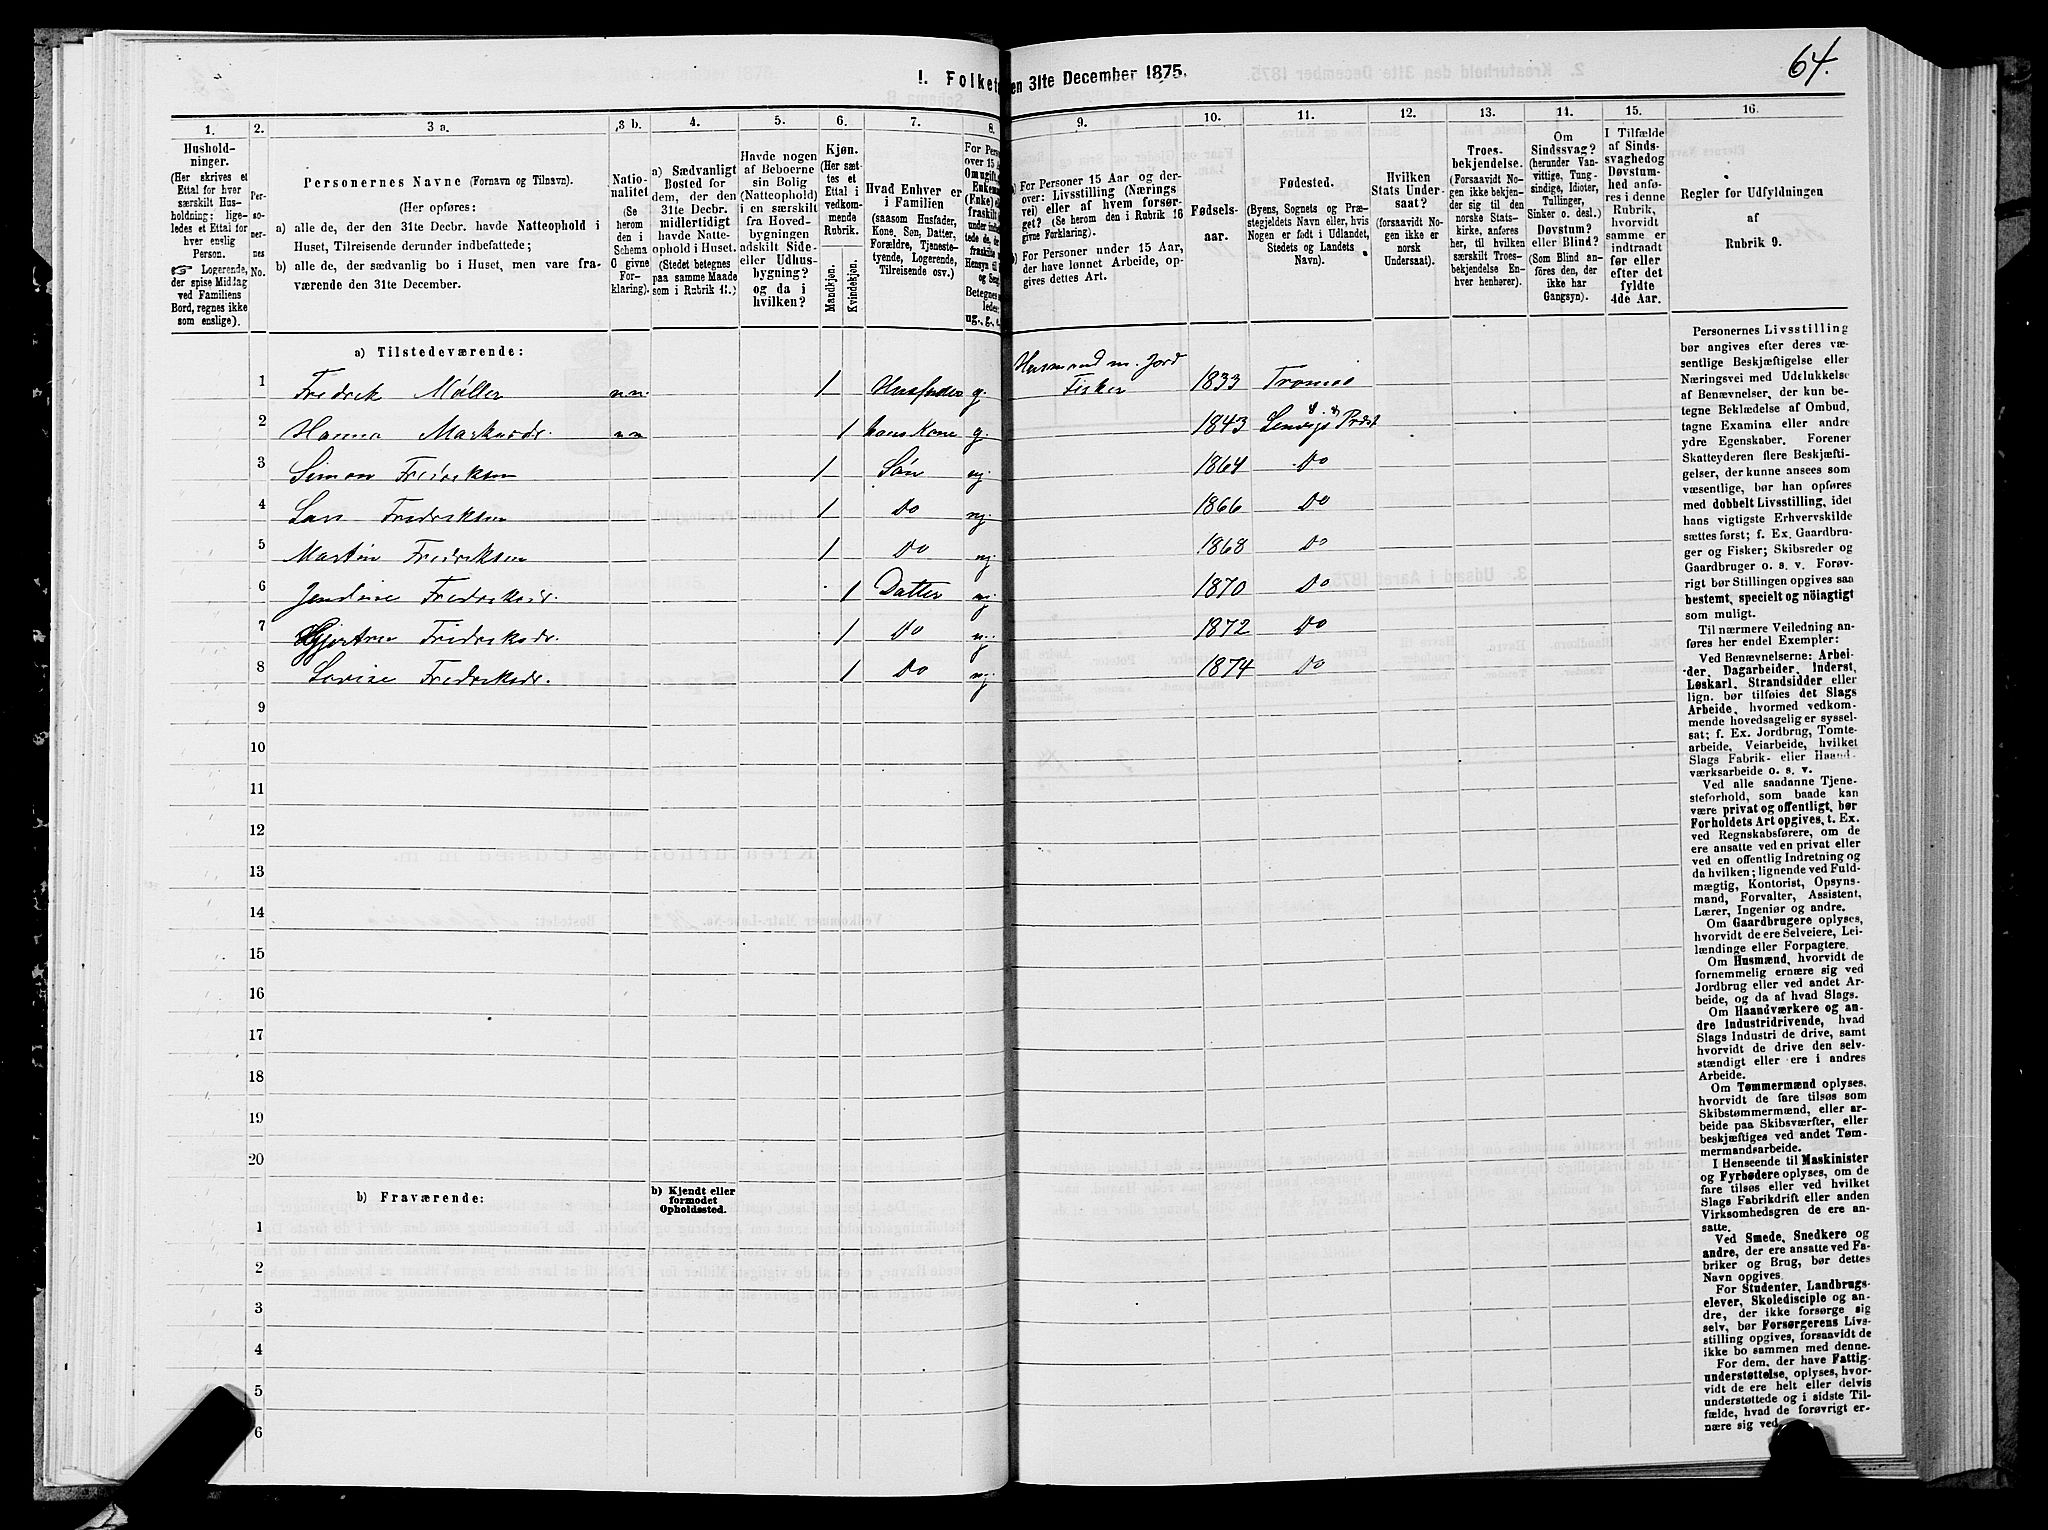 64.
1. Folketæ
en 31te December 1875.
1.
Hushold-
ninger.
(Her skrives et
Ettal for hver
særskilt Hus-
holdning; lige-
ledes et Ettal for
hver enslig
Person.
☞ Logerende,
der spise Middag
ved Familiens
Bord, regnes ikke
som enslige).
2.
Per-
so-
ner-
nes
No.
3 a.
Personernes Navne (Fornavn og Tilnavn).
(Her opføres:
a) alle de, der den 31te Decbr. havde Natteophold i
Huset, Tilreisende derunder indbefattede;
b) alle de, der sædvanlig bo i Huset, men vare fra-
værende den 31te December.
3 b.
Natio-
nalitet
(Se
herom
den i
Schema
6 givne
For-
klaring).
4.
a) Sædvanligt
Bosted for
dem, der den
31te Decbr.
midlertidigt
havde Natte-
ophold i Huset.
(Stedet betegnes
paa samme Maade
som i Rubrik 11.)
5.
Havde nogen
af Beboerne
sin Bolig
(Natteophold)
i en særskilt
fra Hoved-
bygningen
adskilt Side-
eller Udhus-
bygning?
og da i
hvilken?
6.
Kjøn.
(Her sæt-
tes et
Ettal i
vedkom-
mende
Rubrik.
Mandkjøn.
Kvindekjøn.
7.
Hvad Enhver er
i Familien
(saasom Husfader,
Kone, Søn, Datter,
Forældre, Tjeneste-
tyende, Logerende,
Tilreisende osv.)
8.
For Person
over 15 Aa
Omgift,
Enkem
(Enke) el
fraskilt
9.
a) For Personer 15 Aar og der-
over: Livsstilling (Nærings
vei) eller af hvem forsør-
get? (Se herom den i Rubrik 16
givne Forklaring).
b) For Personer under 15 Aar,
der have lønnet Arbeide, op-
gives dettes Art.
10.
Fødsels-
aar.
11.
Fødested.
(Byens, Sognets og Præ-
stegjeldets Navn eller, hvis
Nogen er født i Udlandet,
Stedets og Landets
Navn).
12.
Hvilken
Stats Under-
saat?
(forsaavidt No-
gen ikke er
norsk
Undersaat).
13.
Troes-
bekjendelse.
(Forsaavidt No-
gen ikke bekjen-
der sig til den
norske Stats-
kirke, anføres
her, til hvilken
særskilt Troes-
bekjendelse En-
hver henhører).
14.
Om
Sindssvag?
(herunder Van-
vittige, Tung-
sindige, Idioter,
Tullinger,
Sinker o. desl.)
Døvstum?
eller Blind?
(Som Blind an-
føres den, der
ikke har
Gangsyn).
15.
I Tilfælde
af Sinds-
svaghedog
Døvstum-
hed anfø-
res i denne
Rubrik,
hvorvidt
samme er
indtraadt
før eller
efter det
fyldte
4de Aar.
16.
Regler for Udfyldningen
af
Rubrik 9.
a) Tilstedeværende:
Husmand m. Jord
1 Fredrik Møller n.n. 1 Husfader g. Fisker 1833 Tromsø
2 Hanna Markusdr. n n 1 hans Kone g 1843 Lenvigs Præst
3 Simon Fredriksen 1 Søn ug. 1864 Do
4 Lars Fredriksen 1 Do ug. 1866 Do
5 Martin Fredriksen 1 Do ug. 1868 Do
6 Jendine Fredriksdr. 1 Datter ug. 1870 Do
7 Hjertrue Fridriksdr. 1 Do ug. 1872 Do
8 Lovise Fredriksdr. 1 Do ug. 1874 Do
9
10
11
12
13
14
15
16
17
18
19
20
b) Fraværende:
b) Kjendt eller
formodet
Opholdssted.
1
2
3
4
5
6
Personernes Livsstilling
bør angives efter deres væ-
sentlige Beskjæftigelse eller
Næringsvei med Udelukkelse
af Benævnelser, der kun be-
tegne Beklædelse af Ombud,
tagne Examina eller andre
ydre Egenskaber. Forener
Skatteyderen flere Beskjæfti-
gelser, der kunne ansees som
væsentlige, bør han opføres
med dobbelt Livsstilling, idet
hans vigtigste Erhvervskilde
sættes først; f. Ex. Gaardbru-
ger og Fisker; Skibsreder og
Gaardbruger o. s. v. Forøv-
rigt bør Stillingen opgives saa
bestemt, specielt og nöiagtigt
som muligt.
Til nærmere Veiledning an-
føres her endel Exempler:
Ved Benævnelserne: Arbei-
der, Dagarbeider, Inderst,
Løskarl, Strandsidder eller
lign. bør tilføies det Slags
Arbeide, hvormed vedkom-
mende hovedsagelig er syssel-
sat; f. Ex. Jordbrug, Tomte-
arbeide, Veiarbeide, hvilket
Slags Fabrik- eller Haand-
værksarbeide o. s. v.
Ved alle saadanne Tjene-
steforhold, som baade kan
være privat og offentligt, bør
Forholdets Art opgives, t. Ex.
ved Regnskabsførere, om de
ere ansatte ved en privat eller
ved en offentlig Indretning og
da hvilken; lignende ved Fuld-
mægtig, Kontorist, Opsyns-
mand, Forvalter, Assistent,
Lærer, Ingeniør og andre.
Om Gaardbrugere oplyses,
hvorvidt de ere Selveiere, Lei-
lændinge eller Forpagtere.
Om Husmænd, hvorvidt de
fornemmelig ernære sig ved
Jordbrug eller ved andet Ar-
beide, og da af hvad Slags.
Om Haandværkere og an-
dre Industridrivende, hvad
Slags Industri de drive, samt
hvorvidt de drive den selv-
stændigt eller ere i andres
Arbeide.
Om Tømmermænd oplyses,
hvorvidt de fare tilsøs som
Skibstømmermænd, eller ar-
beide paa Skibsværfter, eller
beskjæftiges ved andet Tøm-
mermandsarbeide.
I Henseende til Maskinister
og Fyrbødere oplyses, om de
fare tilsøs eller ved hvilket
Slags Fabrikdrift eller anden
Virksomhedsgren de ere an-
satte.
Ved Smede, Snedkere og
andre, der ere ansatte ved Fa-
briker og Brug, bør dettes
Navn opgives.
For Studenter, Landbrugs-
elever, Skoledisciple og an-
dre, der ikke forsørge sig
selv, bør Forsørgerens Livs-
stilling opgives, forsaavidt de
ikke bo sammen med denne.
For dem, der have Fattig-
understøttelse, oplyses, hvor-
vidt de ere helt eller delvis
understøttede og i sidste Til-
fælde, hvad de forøvrigt er-
nære sig ved.